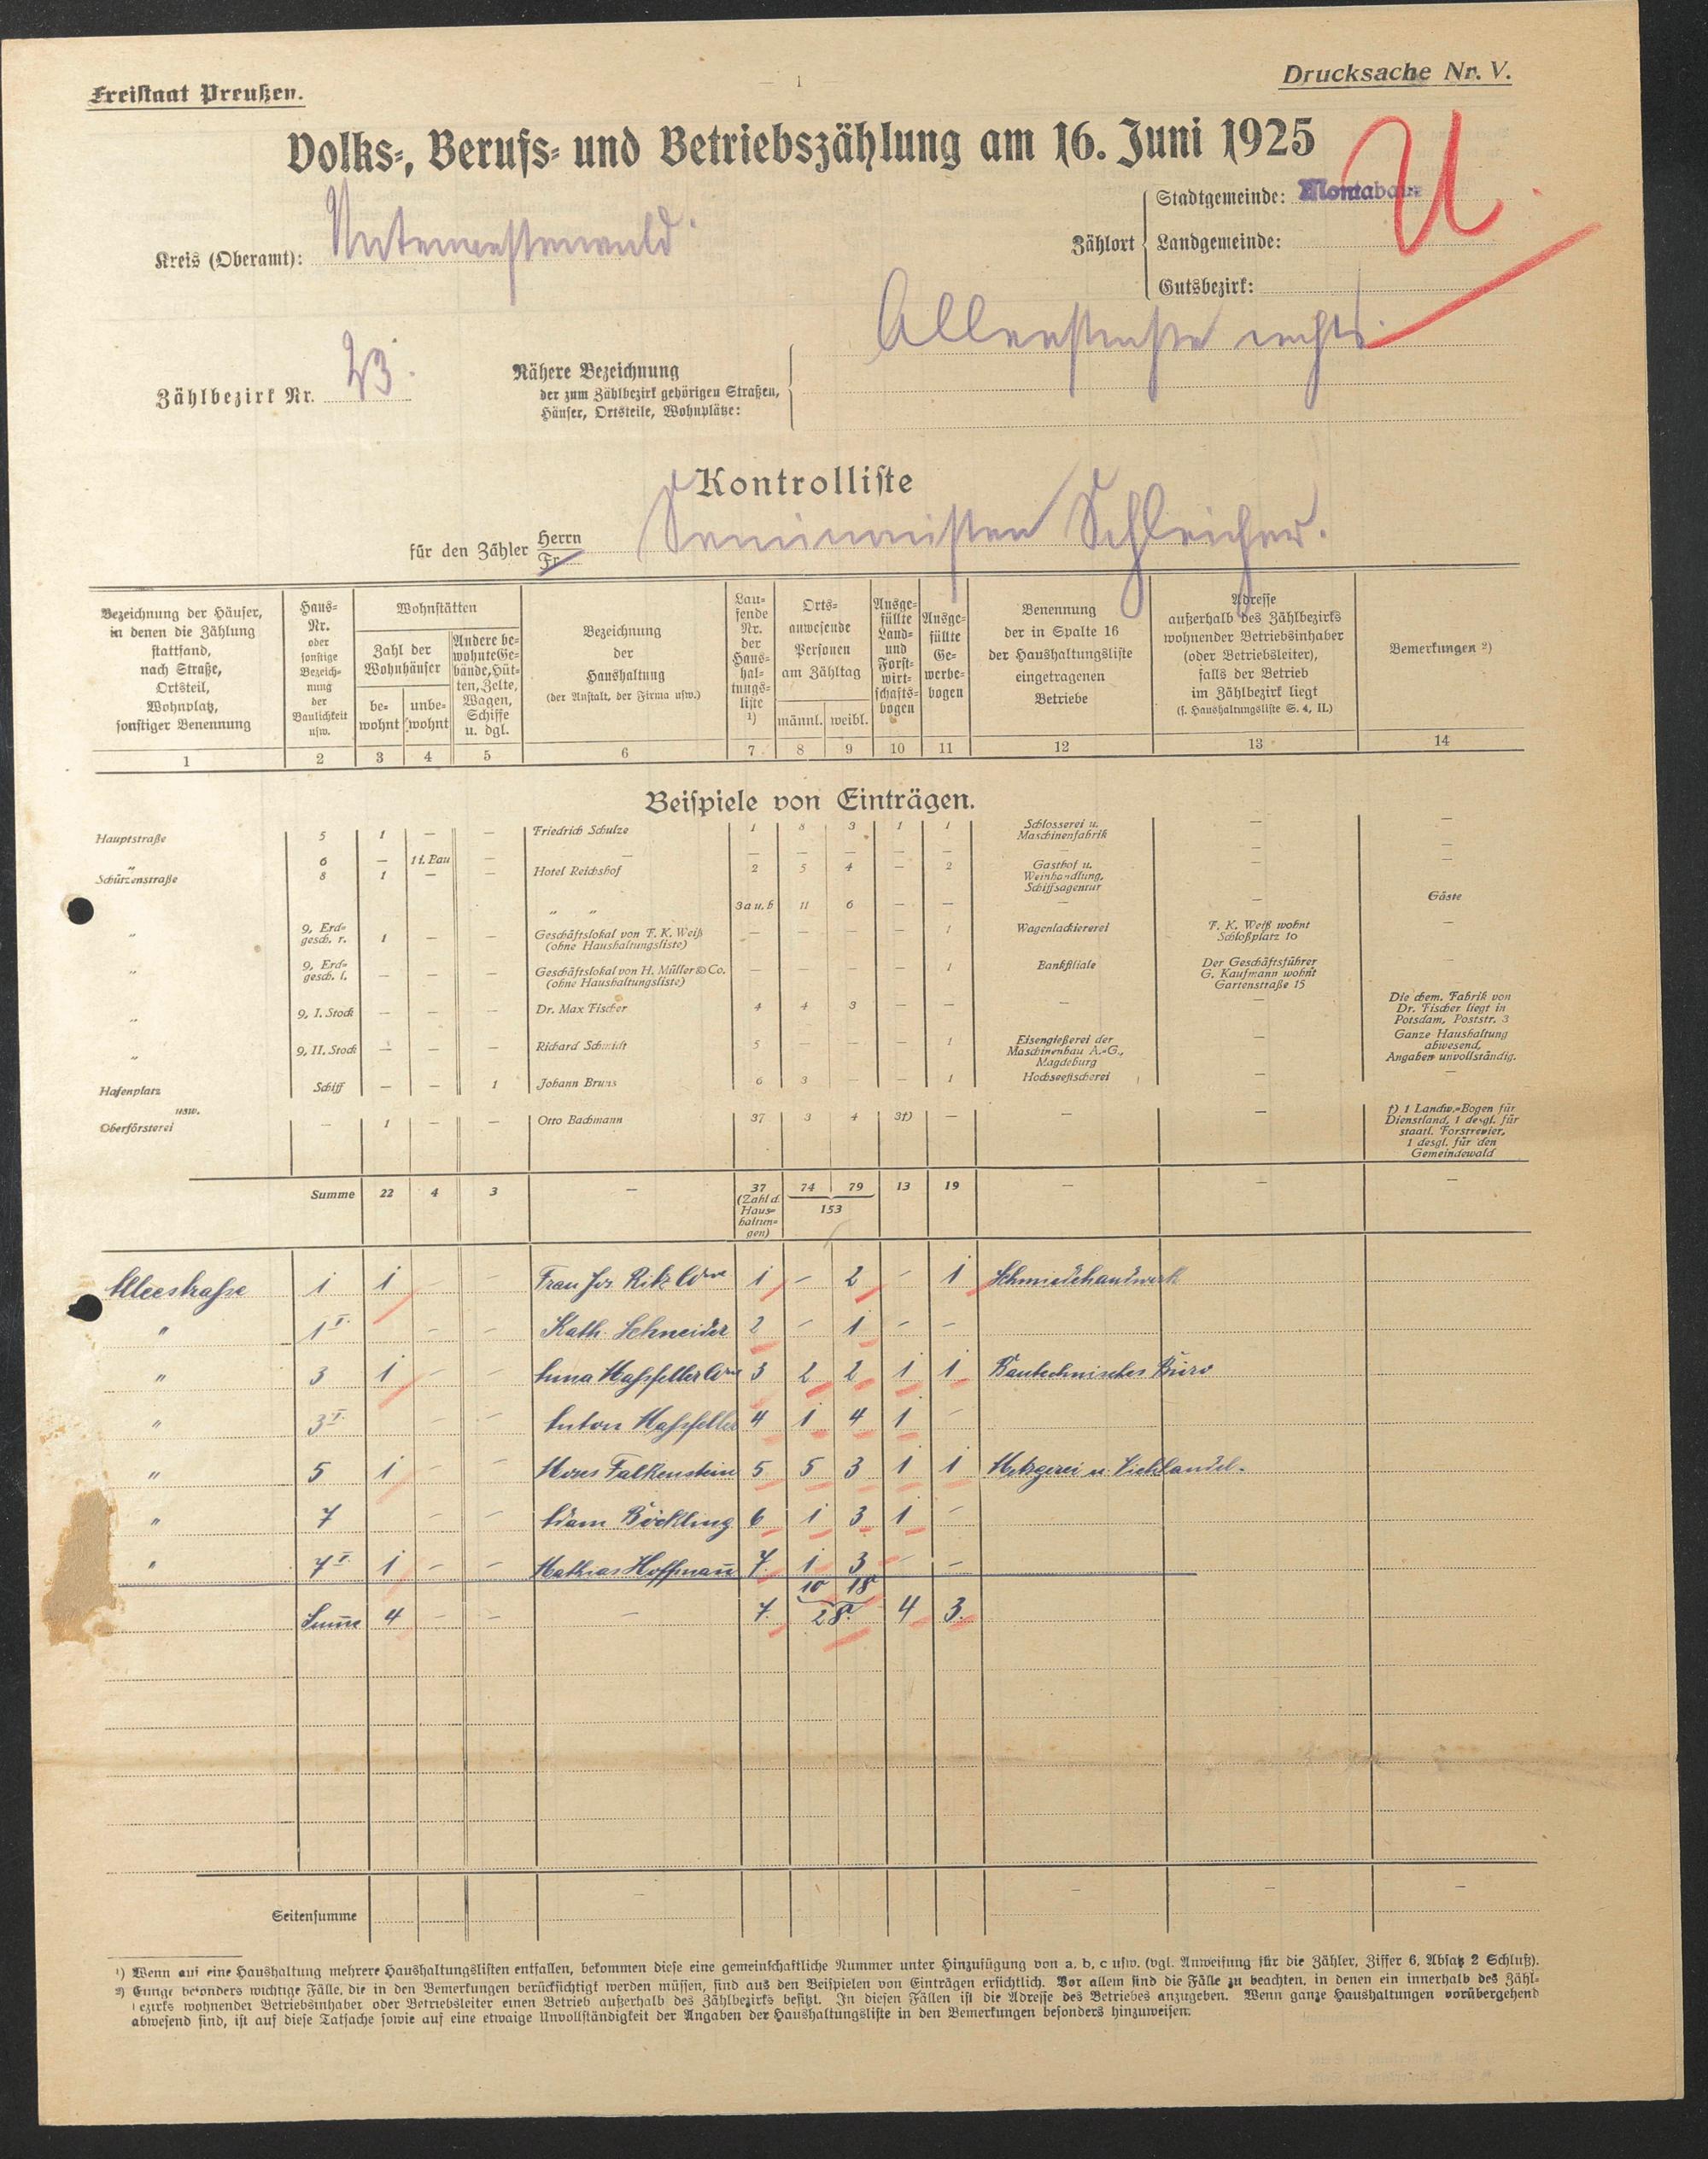 — 1 —
Freistaat Preußen.
Drucksache Nr. V.
Volks-, Berufs- und Betriebszählung am 16. Juni 1925
U
Kreis (Oberamt): Unterwesterwald
Zählort
Stadtgemeinde: Montabaur
Landgemeinde:
Gutsbezirk:
Zählbezirk Nr. 23.
Nähere Bezeichnung
der zum Zählbezirk gehörigen Straßen,
Häuser, Ortsteile, Wohnplätze:
Alleestraße rechts.
Kontrolliste
für den Zähler Herrn Seminaristen Schleicher.
Fr.
Bezeichnung der Häuser, in denen die Zählung stattfand, nach Straße, Ortsteil, Wohnplatz, sonstiger Benennung
Haus-Nr. oder sonstige Bezeichnung der Baulichkeit usw.
Wohnstätten
Zahl der Wohnhäuser
bewohnt
unbewohnt
Andere bewohnte Gebäude, Hütten, Zelte, Wagen, Schiffe u. dgl.
Bezeichnung der Haushaltung (der Anstalt, der Firma usw.)
Laufende Nr. der Haushaltungsliste 1)
Ortsanwesende Personen am Zähltag
männl. weibl.
Ausgefüllte Land- und Forstwirtschaftsbogen
Ausgefüllte Gewerbebogen
Benennung der in Spalte 16 der Haushaltungsliste eingetragenen Betriebe
Adresse außerhalb des Zählbezirks wohnender Betriebsinhaber (oder Betriebsleiter), falls der Betrieb im Zählbezirk liegt (s. Haushaltungsliste S. 4, II.)
Bemerkungen 2)
1 2 3 4 5 6 7 8 9 10 11 12 13 14
Beispiele von Einträgen.
Hauptstraße 5 1 — — Friedrich Schulze 1 8 3 1 1 Schlosserei u. Maschinenfabrik — —
„ 6 — 1 i. Bau — — — — — — — — — —
Schürzenstraße 8 1 — — Hotel Reichshof 2 5 4 — 2 Gasthof u. Weinhandlung, Schiffsagentur — —
„ „ 3a u. b 11 6 — — — — Gäste
„ 9, Erdgesch. r. 1 — — Geschäftslokal von F. K. Weiß (ohne Haushaltungsliste) — — — — 1 Wagenlackiererei F. K. Weiß wohnt Schloßplatz 10 —
„ 9, Erdgesch. l. — — — Geschäftslokal von H. Müller & Co. (ohne Haushaltungsliste) — — — — 1 Bankfiliale Der Geschäftsführer G. Kaufmann wohnt Gartenstraße 15 —
„ 9, I. Stock — — — Dr. Max Fischer 4 4 3 — — — — Die chem. Fabrik von Dr. Fischer liegt in Potsdam, Poststr. 3
„ 9, II. Stock — — — Richard Schmidt 5 — — — 1 Eisengießerei der Maschinenbau A.-G., Magdeburg — Ganze Haushaltung abwesend, Angaben unvollständig.
Hafenplatz Schiff — — 1 Johann Bruns 6 3 — — 1 Hochseefischerei — —
usw.
Oberförsterei — 1 — — Otto Bachmann 37 3 4 3†) — — — †) 1 Landw.-Bogen für Dienstland, 1 desgl. für staatl. Forstrevier, 1 desgl. für den Gemeindewald
Summe 22 4 3 — 37 (Zahl d. Haushaltungen) 74 79 13 19 — — —
153
Alleestraße 1 1 - - Frau Jos. Ritz Wwe 1 - 2 - 1 Schmiedehandwerk
" 1 I. - - Kath. Schneider 2 - 1 - -
" 3 1 - - Anna Hassfeller Wwe 3 2 2 1 1 Bautechnisches Büro
" 3 I. - - Anton Hassfeller 4 1 4 1 -
" 5 1 - - Moses Falkenstein 5 5 3 1 1 Metzgerei u. Viehhandel.
" 7 - - Adam Böckling 6 1 3 1 -
" 7 I. 1 - - Mathias Hoffmann 7. 1 3 - -
10 18
Summe 4 - - - 7. 28. 4 3.
Seitensumme
1) Wenn auf eine Haushaltung mehrere Haushaltungslisten entfallen, bekommen diese eine gemeinschaftliche Nummer unter Hinzufügung von a, b, c usw. (vgl. Anweisung für die Zähler, Ziffer 6, Absatz 2 Schluß).
2) Einige besonders wichtige Fälle, die in den Bemerkungen berücksichtigt werden müssen, sind aus den Beispielen von Einträgen ersichtlich. Vor allem sind die Fälle zu beachten, in denen ein innerhalb des Zähl-
bezirks wohnender Betriebsinhaber oder Betriebsleiter einen Betrieb außerhalb des Zählbezirks besitzt. In diesen Fällen ist die Adresse des Betriebes anzugeben. Wenn ganze Haushaltungen vorübergehend
abwesend sind, ist auf diese Tatsache sowie auf eine etwaige Unvollständigkeit der Angaben der Haushaltungsliste in den Bemerkungen besonders hinzuweisen.